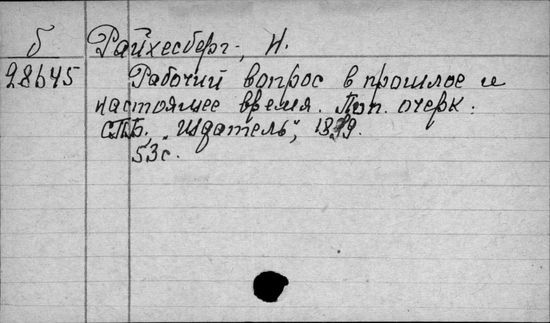 б Райхесберг, Н.
28645 Рабочий вопрос в прошлое и
настоящее время. Поп. очерк.
СПБ, "Издатель", 1899.
53с.